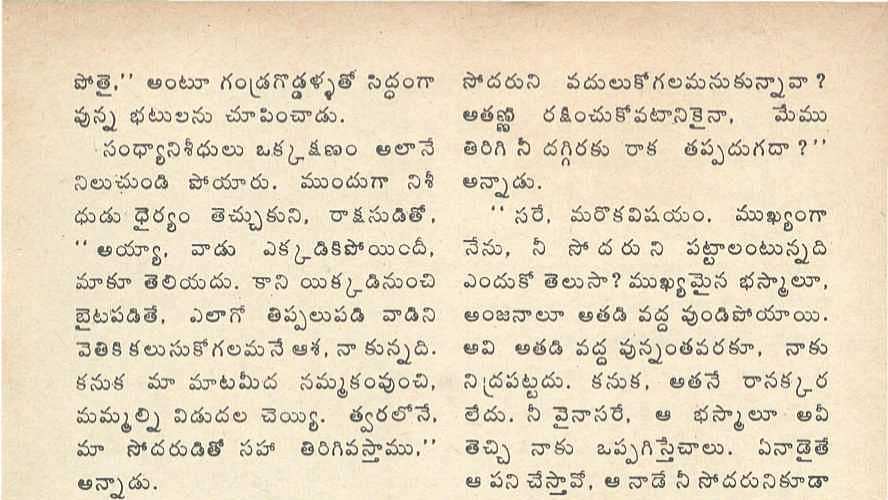 పోతై,'' అంటూ గండ్రగొడ్డళ్ళతో సిద్ధంగా
వున్న భటులను చూపించాడు.
సంధ్యానిశీధులు ఒక్కక్షణం అలానే
నిలుచుండి పోయారు. ముందుగా నిశీ
ధుడు ధైర్యం తెచ్చుకుని, రాక్షసుడితో,
''అయ్యా, వాడు ఎక్కడికిపోయిందీ,
మాకూ తెలియదు. కాని యిక్కడినుంచి
బైటపడితే, ఎలాగో తిప్పలుపడి వాడిని
వెతికి కలుసుకోగలమనే ఆశ, నా కున్నది.
కనుక మా మాటమీద నమ్మకంవుంచి,
మమ్మల్ని విడుదల చెయ్యి. త్వరలోనే,
మా సోదరుడితో సహా తిరిగివస్తాము,''
అన్నాడు.
సోదరుని వదులుకోగలమనుకున్నావా?
అతణ్ణి రక్షించుకోవటానికైనా, మేము
తిరిగి నీ దగ్గిరకు రాక తప్పదుగదా?''
అన్నాడు.
''సరే, మరొకవిషయం. ముఖ్యంగా
నేను, నీ సోదరుని పట్టాలంటున్నది
ఎందుకో తెలుసా? ముఖ్యమైన భస్మాలూ,
అంజనాలూ అతడి వద్ద వుండిపోయాయి.
అవి అతడి వద్ద వున్నంతవరకూ, నాకు
నిద్రపట్టదు. కనుక, అతనే రానక్కర
లేదు. నీ వైనాసరే, ఆ భస్మాలూ అవీ
తెచ్చి నాకు ఒప్పగిస్తేచాలు. ఏనాడైతే
ఆ పని చేస్తావో, ఆ నాడే నీ సోదరునికూడా